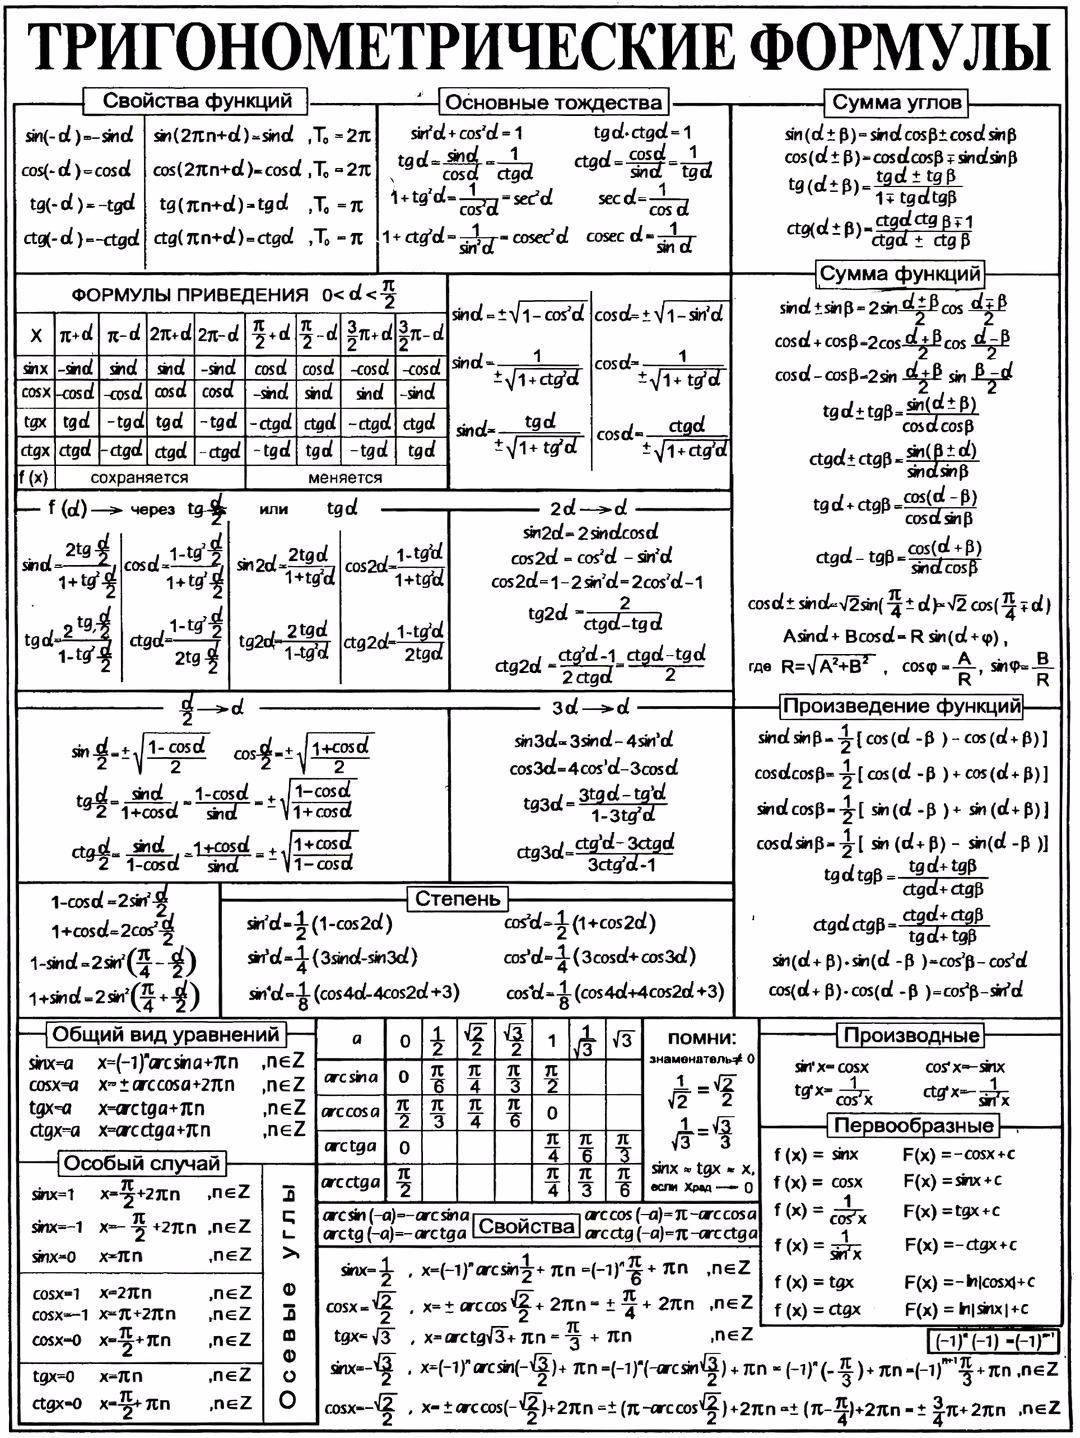 ТРИГОНОМЕТРИЧЕСКИЕ ФОРМУЛЫ
Свойства функций
sin(-α)=-sinα sin(2πn+α)=sinα ,T₀=2π
cos(-α)=cosα cos(2πn+α)=cosα ,T₀=2π
tg(-α)=-tgα tg(πn+α)=tgα ,T₀=π
ctg(-α)=-ctgα ctg(πn+α)=ctgα ,T₀=π
Основные тождества
sin²α+cos²α=1 tgα·ctgα=1
tgα=sinα/cosα=1/ctgα ctgα=cosα/sinα=1/tgα
1+tg²α=1/cos²α=sec²α secα=1/cosα
1+ctg²α=1/sin²α=cosec²α cosec α=1/sin α
Сумма углов
sin(α±β)=sinαcosβ±cosαsinβ
cos(α±β)=cosαcosβ∓sinαsinβ
tg(α±β)=(tgα±tgβ)/(1∓tgαtgβ)
ctg(α±β)=(ctgα ctgβ∓1)/(ctgα ± ctgβ)
ФОРМУЛЫ ПРИВЕДЕНИЯ 0<α<π/2
X π+α π-α 2π+α 2π-α π/2+α π/2-α 3/2π+α 3/2π-α
sinx -sinα sinα sinα -sinα cosα cosα -cosα -cosα
cosx -cosα -cosα cosα cosα -sinα sinα sinα -sinα
tgx tgα -tgα tgα -tgα -ctgα ctgα -ctgα ctgα
ctgx ctgα -ctgα ctgα -ctgα -tgα tgα -tgα tgα
f(x) сохраняется меняется
sinα=±√(1-cos²α) cosα=±√(1-sin²α)
sinα=1/(±√(1+ctg²α)) cosα=1/(±√(1+tg²α))
sinα=tgα/(±√(1+tg²α)) cosα=ctgα/(±√(1+ctg²α))
Сумма функций
sinα±sinβ=2sin (α±β)/2 cos (α∓β)/2
cosα+cosβ=2cos (α+β)/2 cos (α-β)/2
cosα-cosβ=2sin (α+β)/2 sin (β-α)/2
tgα±tgβ=sin(α±β)/(cosαcosβ)
ctgα±ctgβ=sin(β±α)/(sinαsinβ)
tgα+ctgβ=cos(α-β)/(cosαsinβ)
ctgα-tgβ=cos(α+β)/(sinαcosβ)
cosα±sinα=√2sin(π/4±α)=√2cos(π/4∓α)
Asinα+Bcosα=R sin(α+φ),
где R=√(A²+B²) , cosφ=A/R, sinφ=B/R
f(α)→через tg α/2 или tgα
sinα=(2tg α/2)/(1+tg² α/2) cosα=(1-tg² α/2)/(1+tg² α/2) sin2α=2tgα/(1+tg²α) cos2α=(1-tg²α)/(1+tg²α)
tgα=(2tg α/2)/(1-tg² α/2) ctgα=(1-tg² α/2)/(2tg α/2) tg2α=2tgα/(1-tg²α) ctg2α=(1-tg²α)/(2tgα)
2α→α
sin2α=2sinαcosα
cos2α=cos²α-sin²α
cos2α=1-2sin²α=2cos²α-1
tg2α=2/(ctgα-tgα)
ctg2α=(ctg²α-1)/(2ctgα)=(ctgα-tgα)/2
α/2→α
sin α/2=±√((1-cosα)/2) cos α/2=±√((1+cosα)/2)
tg α/2=sinα/(1+cosα)=(1-cosα)/sinα=±√((1-cosα)/(1+cosα))
ctg α/2=sinα/(1-cosα)=(1+cosα)/sinα=±√((1+cosα)/(1-cosα))
3α→α
sin3α=3sinα-4sin³α
cos3α=4cos³α-3cosα
tg3α=(3tgα-tg³α)/(1-3tg²α)
ctg3α=(ctg³α-3ctgα)/(3ctg²α-1)
Произведение функций
sinαsinβ=1/2[cos(α-β)-cos(α+β)]
cosαcosβ=1/2[cos(α-β)+cos(α+β)]
sinαcosβ=1/2[sin(α-β)+sin(α+β)]
cosαsinβ=1/2[sin(α+β)-sin(α-β)]
tgαtgβ=(tgα+tgβ)/(ctgα+ctgβ)
ctgαctgβ=(ctgα+ctgβ)/(tgα+tgβ)
sin(α+β)·sin(α-β)=cos²β-cos²α
cos(α+β)·cos(α-β)=cos²β-sin²α
1-cosα=2sin² α/2
1+cosα=2cos² α/2
1-sinα=2sin²(π/4-α/2)
1+sinα=2sin²(π/4+α/2)
Степень
sin²α=1/2(1-cos2α) cos²α=1/2(1+cos2α)
sin³α=1/4(3sinα-sin3α) cos³α=1/4(3cosα+cos3α)
sin⁴α=1/8(cos4α-4cos2α+3) cos⁴α=1/8(cos4α+4cos2α+3)
Общий вид уравнений
sinx=a x=(-1)ⁿarcsina+πn ,n∈Z
cosx=a x=±arccosa+2πn ,n∈Z
tgx=a x=arctga+πn ,n∈Z
ctgx=a x=arcctga+πn ,n∈Z
a 0 1/2 √2/2 √3/2 1 1/√3 √3
arcsina 0 π/6 π/4 π/3 π/2
arccosa π/2 π/3 π/4 π/6 0
arctga 0 π/4 π/6 π/3
arcctga π/2 π/4 π/3 π/6
ПОМНИ:
знаменатель≠0
1/√2=√2/2
1/√3=√3/3
sinx ≈ tgx ≈ x,
если Xрад → 0
Производные
sin'x=cosx cos'x=-sinx
tg'x=1/cos²x ctg'x=-1/sin²x
Первообразные
f(x)=sinx F(x)=-cosx+c
f(x)=cosx F(x)=sinx+c
f(x)=1/cos²x F(x)=tgx+c
f(x)=1/sin²x F(x)=-ctgx+c
f(x)=tgx F(x)=-ln|cosx|+c
f(x)=ctgx F(x)=ln|sinx|+c
Особый случай
sinx=1 x=π/2+2πn ,n∈Z
sinx=-1 x=-π/2+2πn ,n∈Z
sinx=0 x=πn ,n∈Z
cosx=1 x=2πn ,n∈Z
cosx=-1 x=π+2πn ,n∈Z
cosx=0 x=π/2+πn ,n∈Z
tgx=0 x=πn ,n∈Z
ctgx=0 x=π/2+πn ,n∈Z
Осевые углы
Свойства
arcsin(-a)=-arcsina arccos(-a)=π-arccosa
arctg(-a)=-arctga arcctg(-a)=π-arcctga
sinx=1/2 , x=(-1)ⁿarcsin 1/2+πn=(-1)ⁿ π/6+πn ,n∈Z
cosx=√2/2 , x=±arccos √2/2+2πn=±π/4+2πn ,n∈Z
tgx=√3 , x=arctg√3+πn=π/3+πn ,n∈Z
(-1)ⁿ(-1)=(-1)ⁿ⁺¹
sinx=-√3/2 , x=(-1)ⁿarcsin(-√3/2)+πn=(-1)ⁿ(-arcsin √3/2)+πn=(-1)ⁿ(-π/3)+πn=(-1)ⁿ⁺¹ π/3+πn ,n∈Z
cosx=-√2/2 , x=±arccos(-√2/2)+2πn=±(π-arccos √2/2)+2πn=±(π-π/4)+2πn=±3/4π+2πn ,n∈Z